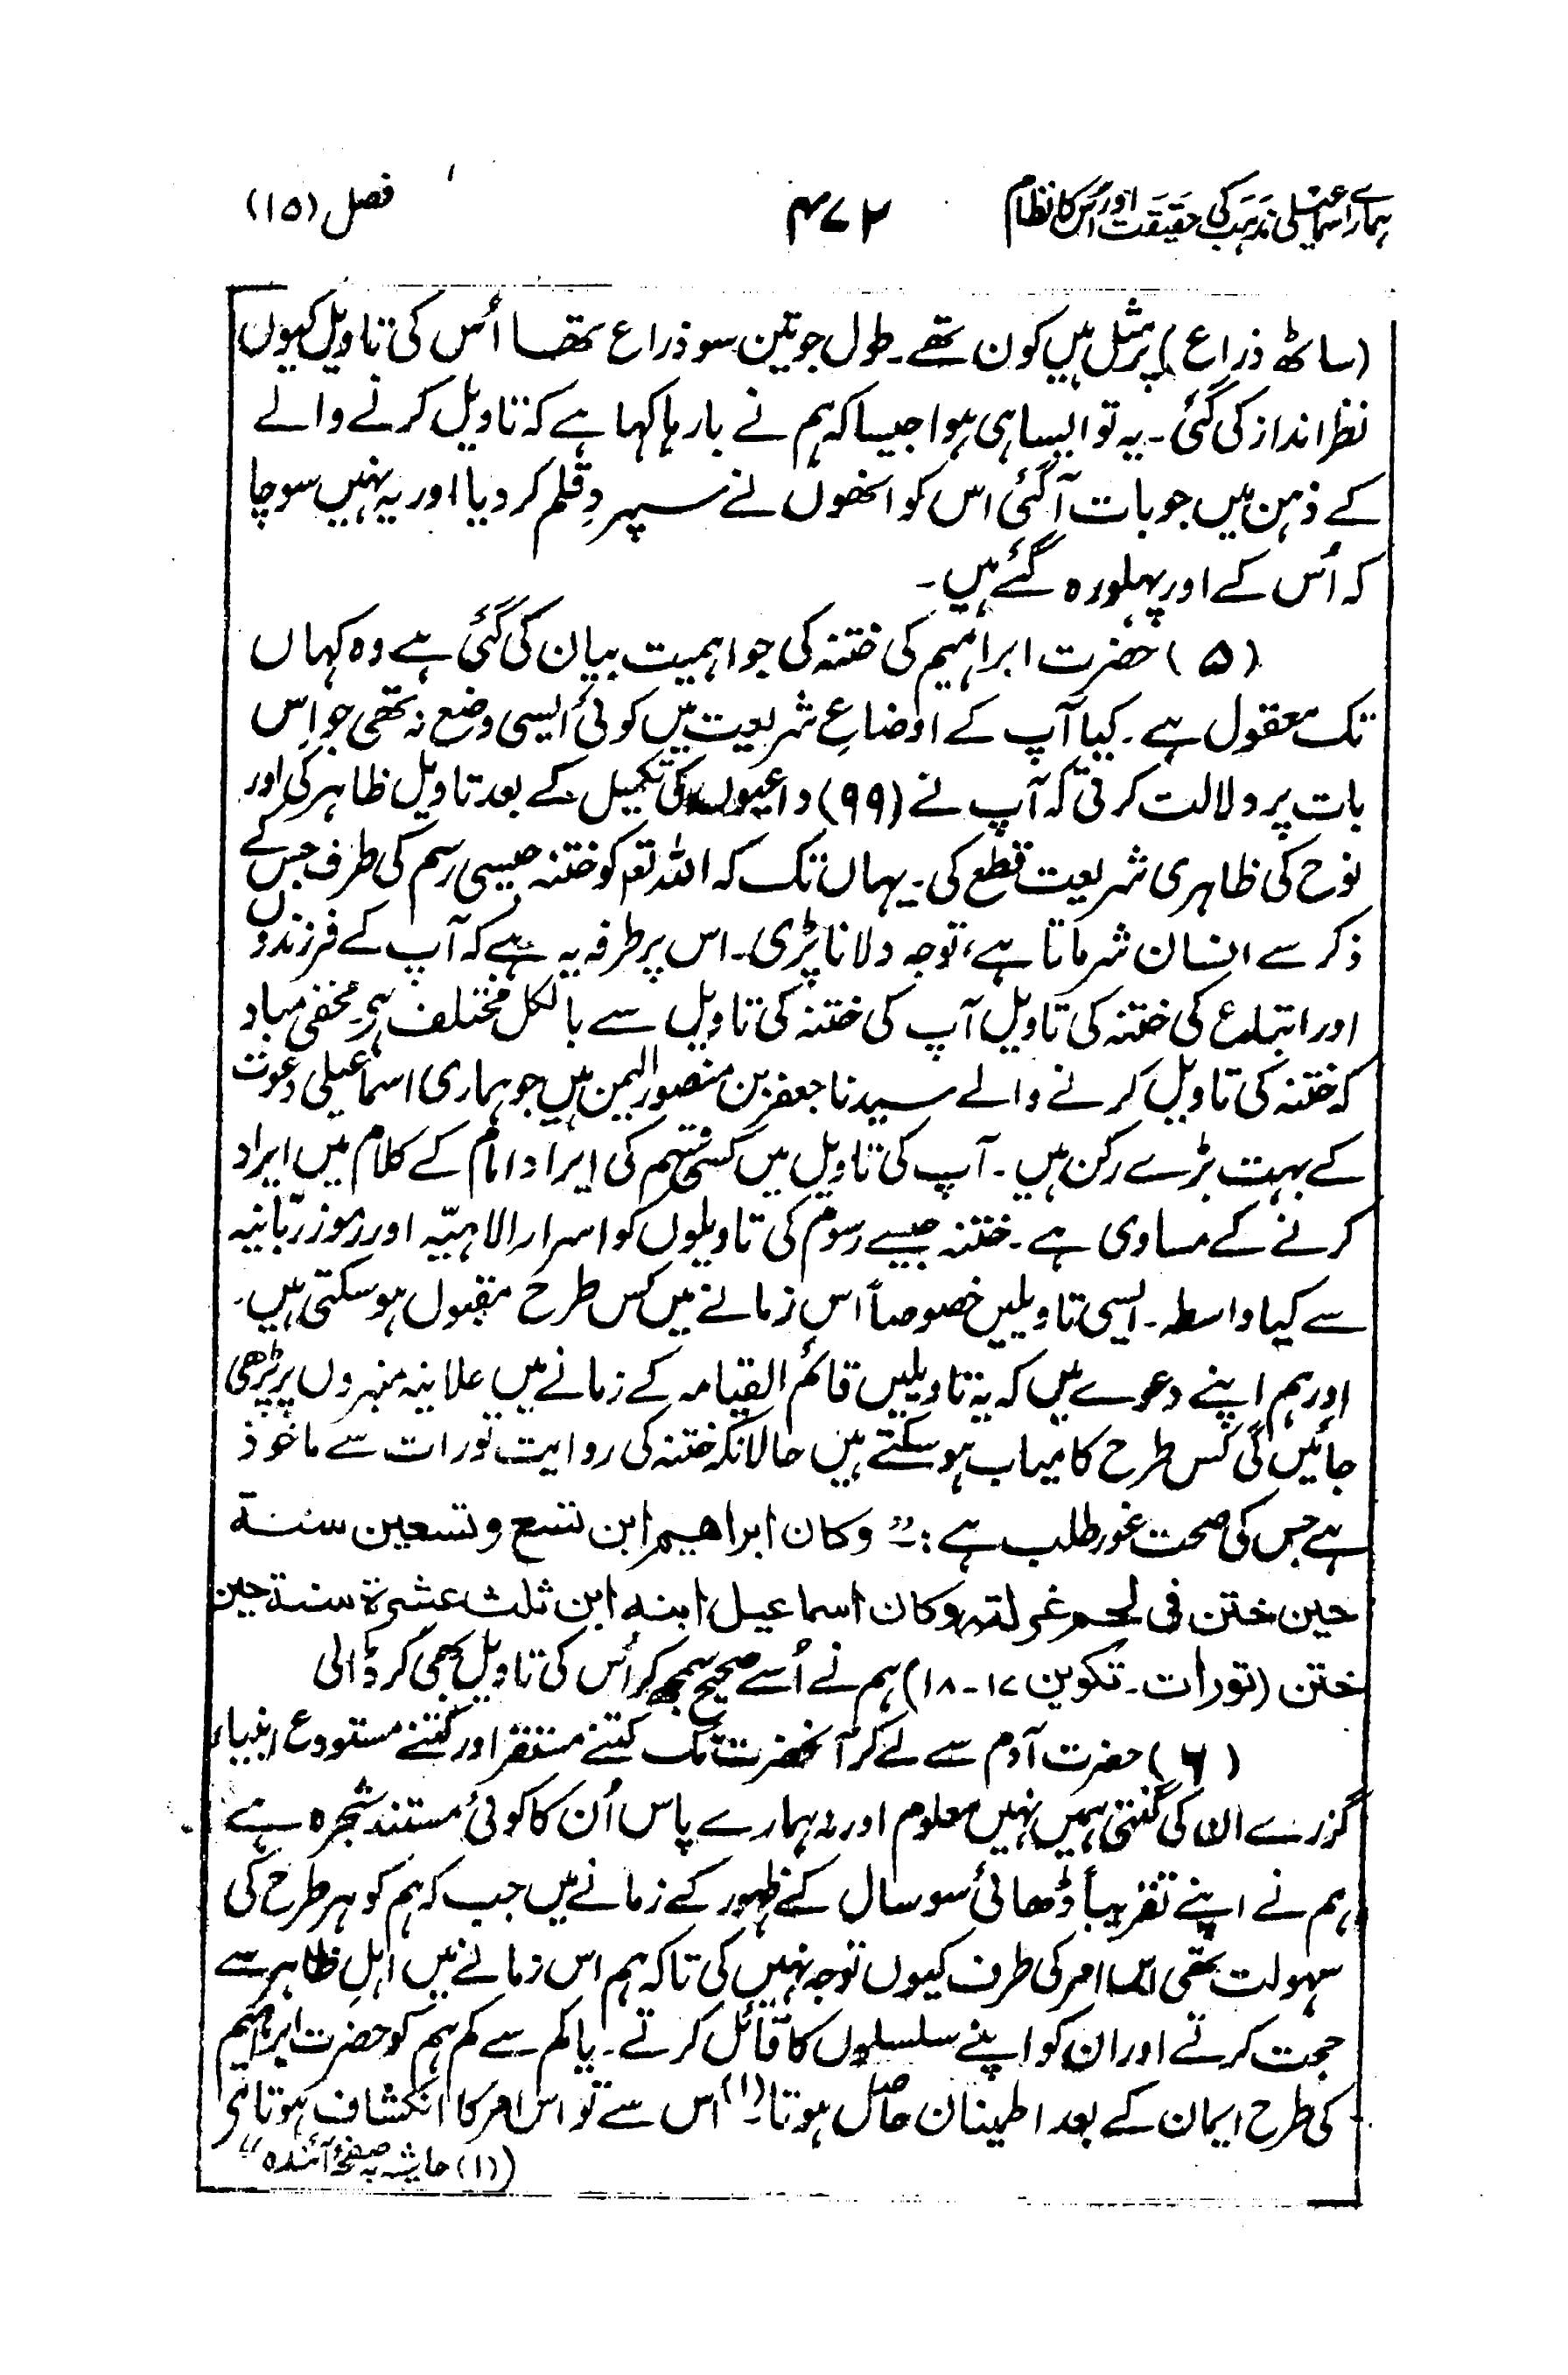 ہمارے اسماعیلی مذہب کی حقیقت اور اس کا نظام ۴۷۲ فصل (۱۵)
(ساٹھ ذراع) پر مشتمل ہیں کون تھے۔ طول جو تین سو ذراع تھا اُس کی تاویل کیوں
نظر انداز کی گئی۔ یہ تو ایسا ہی ہوا جیسا کہ ہم نے بارہا کہا ہے کہ تاویل کرنے والے
کے ذہن میں جو بات آگئی اس کو انھوں نے سپردِ قلم کر دیا اور یہ نہیں سوچا
کہ اُس کے اور پہلو رہ گئے ہیں۔
(۵) حضرت ابراہیم کی ختنہ کی جو اہمیت بیان کی گئی ہے وہ کہاں
تک معقول ہے۔ کیا آپ کے اوضاعِ شریعت میں کوئی ایسی وضع نہ تھی جو اِس
بات پر دلالت کرتی کہ آپ نے (۹۹) داعیوں کی تکمیل کے بعد تاویل ظاہر کی اور
نوح کی ظاہری شریعت قطع کی۔ یہاں تک کہ اللہ تعم کو ختنہ جیسی رسم کی طرف جس کے
ذکر سے انسان شرماتا ہے، توجہ دلانا پڑی۔ اس پر طرفہ یہ ہے کہ آپ کے فرزندوں
اور اتباع کی ختنہ کی تاویل آپ کی ختنہ کی تاویل سے بالکل مختلف ہے۔ مخفی مباد
کہ ختنہ کی تاویل کرنے والے سیدنا جعفر بن منصور الیمن ہیں جو ہماری اسماعیلی دعوت
کے بہت بڑے رکن ہیں۔ آپ کی تاویل میں کسی قسم کی ایراد امام کے کلام میں ایراد
کرنے کے مساوی ہے۔ ختنہ جیسے رسوم کی تاویلوں کو اسرار الاہیّہ اور رموز ربّانیہ
سے کیا واسطہ۔ ایسی تاویلیں خصوصاً اس زمانے میں کس طرح مقبول ہو سکتی ہیں۔
اور ہم اپنے دعوے میں کہ یہ تاویلیں قائم القیامہ کے زمانے میں علانیہ منبروں پر پڑھی
جائیں گی کس طرح کامیاب ہو سکتے ہیں حالانکہ ختنہ کی روایت تورات سے ماخوذ
ہے جس کی صحت غور طلب ہے:۔ "وكان ابراهيم ابن تسع وتسعين سنة
حين ختن فى لحم غرلته وكان اسماعيل ابنه ابن ثلث عشرة سنة حين
ختن (تورات۔ تکوین ۱۷-۱۸) ہم نے اُسے صحیح سمجھ کر اُس کی تاویل بھی کر ڈالی
(۶) حضرت آدم سے لے کر آنحضرت تک کتنے مستقر اور کتنے مستودع انبیاء
گزرے ان کی گنتی ہمیں نہیں معلوم اور نہ ہمارے پاس اُن کا کوئی مستند شجرہ ہے
ہم نے اپنے تقریباً ڈھائی سو سال کے ظہور کے زمانے میں جب کہ ہم کو ہر طرح کی
سہولت تھی اس امر کی طرف کیوں توجہ نہیں کی تاکہ ہم اس زمانے میں اہلِ ظاہر سے
حجت کرتے اور ان کو اپنے سلسلوں کا قائل کرتے۔ یا کم سے کم ہم کو حضرت ابراہیم
کی طرح ایمان کے بعد اطمینان حاصل ہوتا۔(۱) اس سے تو اس امر کا انکشاف ہوتا ہی
((۱) حاشیہ بہ صفحۂ آئندہ"